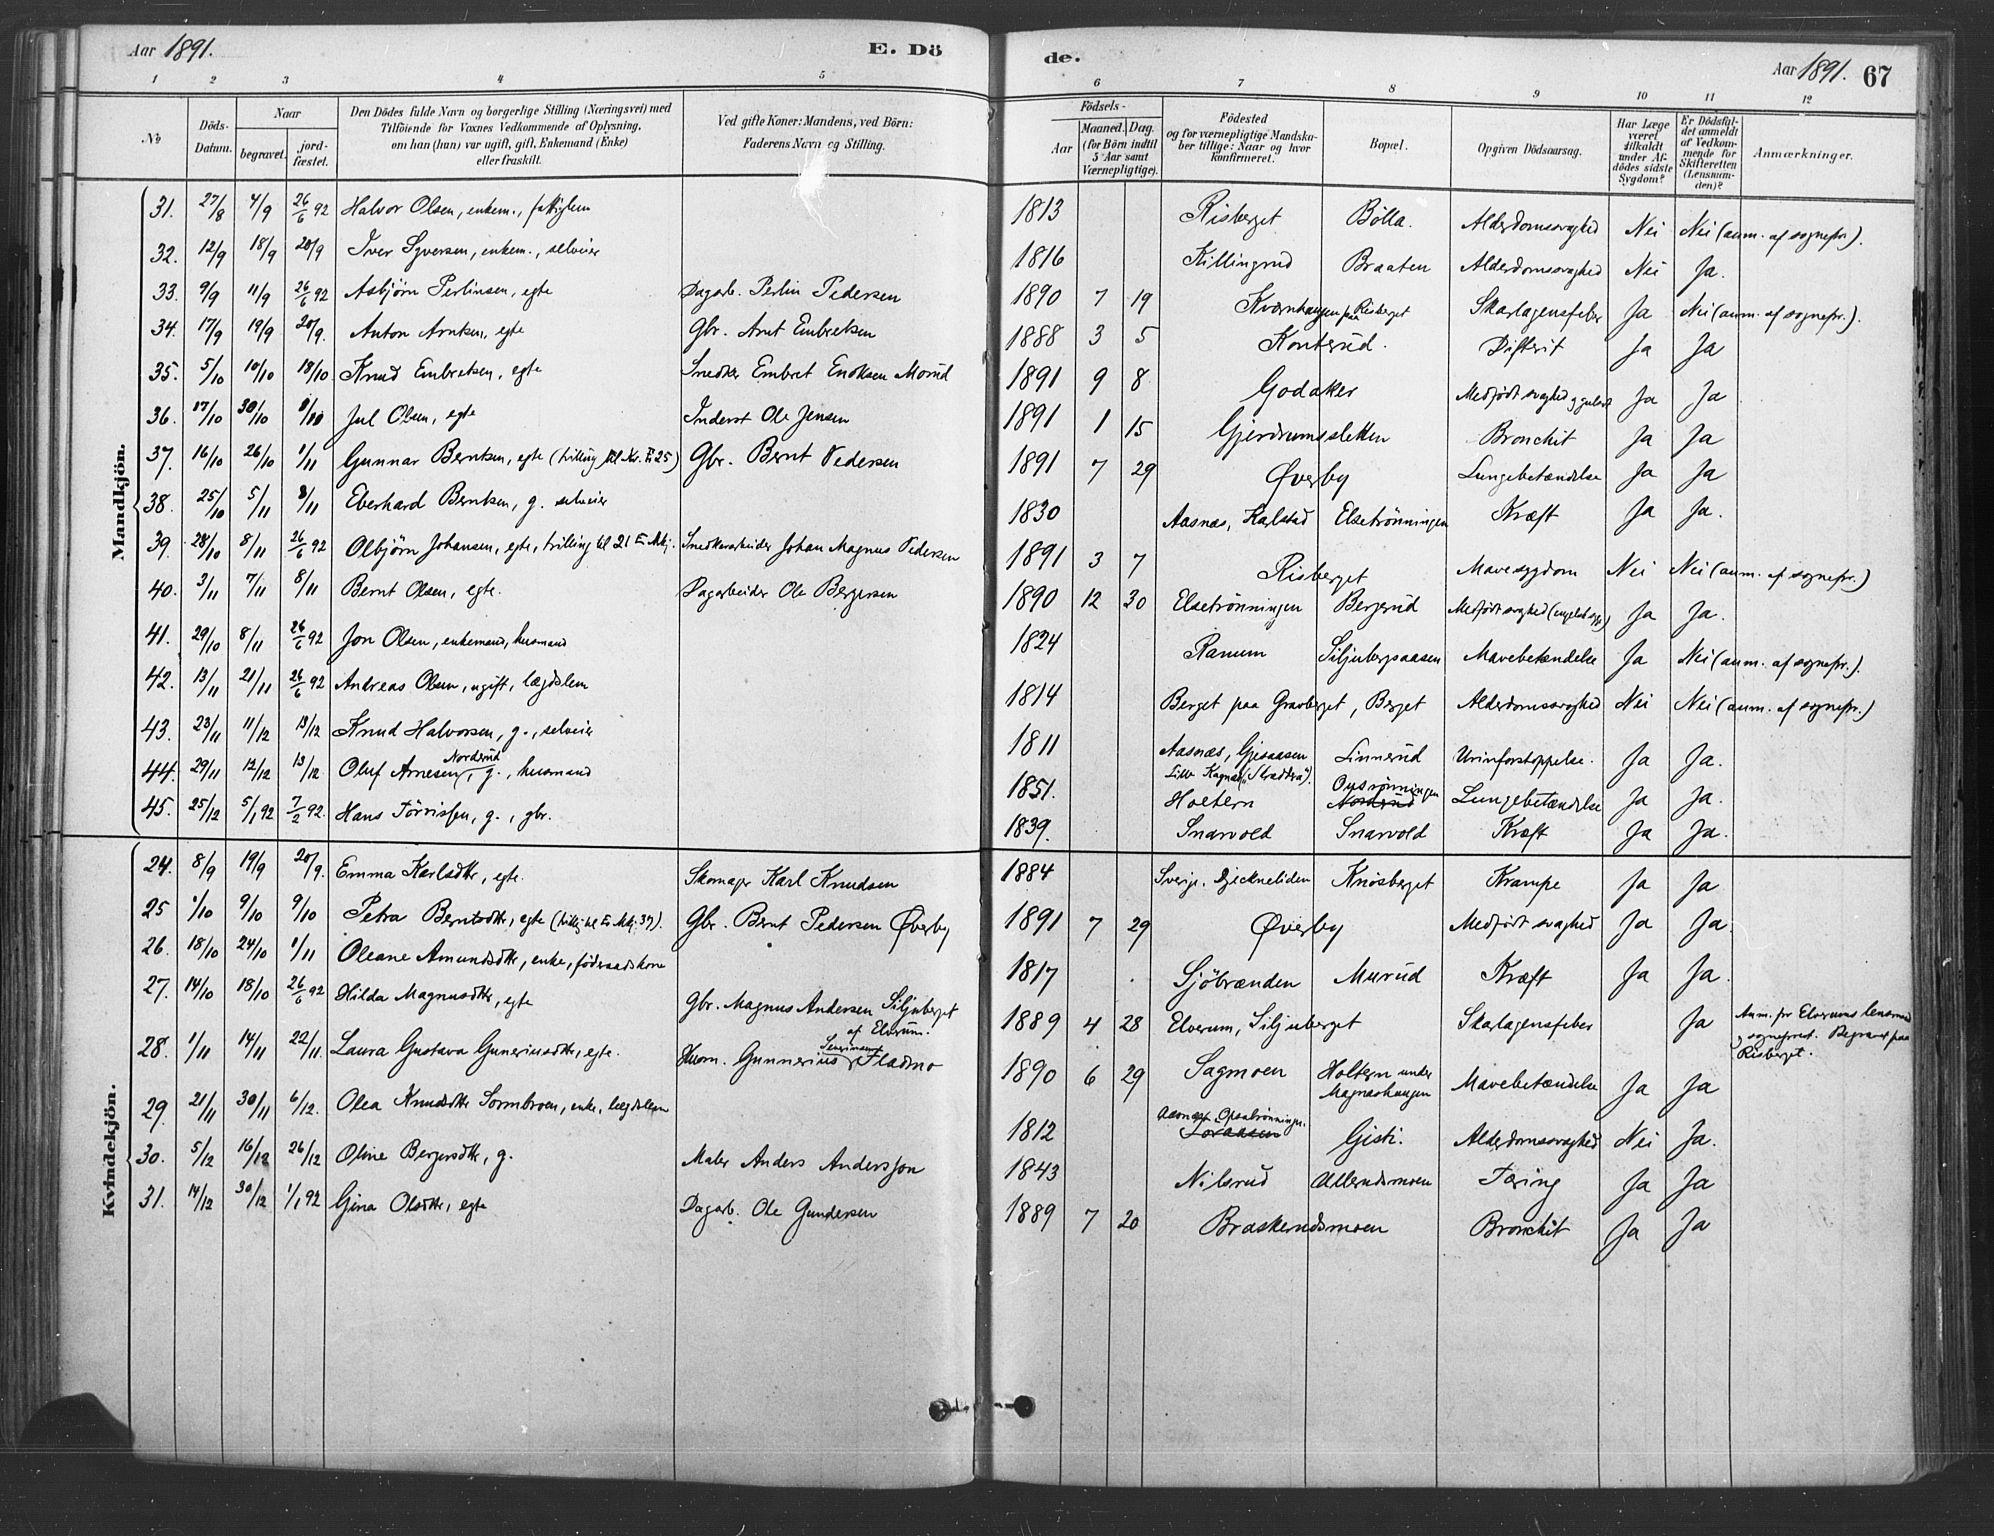 Aar 1891. E. Dö
de. Aar 1891. 67
1 2 3 4 5 6 7 8 9 10 11 12
No
Döds-Datum.
Naar
begravet.
jordfæstet.
Den Dödes fulde Navn og borgerlige Stilling (Næringsvei) med
Tilföiende for Voxnes Vedkommende af Oplysning,
om han (hun) var ugift, gift, Enkemand (Enke)
eller fraskilt.
Ved gifte Koner: Mandens, ved Börn:
Faderens Navn og Stilling.
Födsels-
Aar
Maaned. Dag.
(for Börn indtil
5 Aar samt
Værnepligtige).
Födested
og for værnepligtige Mandska-
ber tillige: Naar og hvor
konfirmeret.
Bopæl.
Opgiven Dödsaarsag.
Har Læge
været
tilkaldt
under Af-
dödes sidste
Sygdom?
Er Dödsfal-
det anmeldt
af Vedkom-
mende for
Skifteretten
(Lensman-
den)?
Anmærkninger.
Mandkjön.
31. 27/8 4/9 26/6 92 Halvor Olsen, enkem., fattiglem 1813 Risberget Bölla. Alderdomssvaghed Nei Nei (anm. af sognepr.).
32. 12/9 18/9 20/9 Iver Syversen, enkem., selveier 1816 Killingrud Braaten Alderdomssvaghed Nei Ja.
33. 9/9 11/9 26/6 92 Asbjørn Perlinsen, egte Dagarb. Perlin Pedersen 1890 7 19 Kværnhaugen paa Risberget Skarlagensfeber Ja Nei (anm. af sognepr.).
34. 17/9 19/9 20/9. Anton Arntsen, egte Gbr. Arnt Embretsen 1888 3 5 Konterud. Difterit Ja Ja
35. 5/10 10/10 18/10 Knud Embretsen, egte Snedker Embret Eriksen Morud 1891 9 8 Godaker Medfödt svaghed og gulsot Ja Ja
36. 17/10 30/10 1/11 Jul Olsen, egte Inderst Ole Jensen 1891 1 15 Gjerdrumssletten Bronchit Ja Ja
37. 16/10 26/10 1/11 Gunnar Berntsen, egte (tvilling til Nr. E 25) Gbr. Bernt Pedersen 1891 7 29 Øverby Lungebetændelse Ja Ja
38. 25/10 5/11 8/11 Eberhard Berntsen, g. selveier 1830 Aasnæs, Kalstad Elsetrönningen Kræft Ja Ja.
39. 28/10 8/11 26/6 92 Olbjörn Johansen, egte, tvilling til 21 E Mkj. Snedkerarbeider Johan Magnus Pedersen 1891 3 7 Risberget Mavesygdom Nei Nei (anm. af sognepr.)
40. 3/11 7/11 8/11 Bernt Olsen, egte. Dagarbeider Ole Bergersen 1890 12 30 Elsetrönningen Bergerud Medfödt svaghed (engelsk syge) Ja Ja.
41. 29/10 8/11 26/6 92 Jon Olsen, enkemand, husmand 1824 Ranum Siljubergsaasen Mavebetændelse Ja Nei (anm. af sognepr.).
42. 13/11 21/11 26/6 92 Andreas Olsen, ugift, lægdslem 1814 Berget paa Gravberget, Berget Alderdomssvaghed Nei Nei (anm. af sognepr.)
43. 23/11 11/12 13/12 Knud Halvorsen, g., selveier 1811 Aasnæs, Gjesaasen Linnerud Urinforstoppelse. Ja Ja.
44. 29/11 12/12 13/12 Oluf Arnesen Norderud, g., husmand 1851. Lille Kagnæs Holtern Opsrönningen Norderud Lungebetændelse Ja Ja.
45. 25/12 5/1 92 7/2 92. Hans Törrissen, g., gbr. 1839. Snarvold Snarvold Kræft Ja Ja.
Kvindekjön.
24. 8/9 19/9 20/9. Emma Karlsdtr, egte. Skomager Karl Knudsen 1884 Sverige. Djeckneliden Knösberget Krampe Ja Ja
25 1/10 9/10 9/10 Petra Berntsdtr, egte (tvill. til E Mkj. 37). Gbr. Bernt Pedersen Øverby 1891 7 29 Øverby Medfödt svaghed Ja Ja.
26. 18/10 24/10 1/11 Oleane Amundsdtr, enke, föderaadskone 1817 Sjöbrænden Murud Kræft Ja Ja.
27. 14/10 18/10 26/6 92 Hilda Magnusdtr, egte Gbr. Magnus Andersen Siljuberget af Elverum. 1889 4 28 Elverum, Siljuberget Skarlagensfeber Ja Anm. for Elverums lensmand og sogneprest. Begravet paa Risberget.
28. 1/11 14/11 22/11. Laura Gustava Gunneriusdtr, egte. Husm. Gunnerius Fladmo 1890 6 29 Sagmoen Holtern under Magnashaugen Mavebetændelse Ja Ja
29. 21/11 30/11 6/12. Olea Knudsdtr Sormbroen, enke, lægdslem 1812 Aasnæs, Opsatrönningen. Gisti. Alderdomssvaghed Nei Ja.
30. 5/12 16/12 26/12 Oline Bergersdtr, g. Maler Anders Andersson 1843 Nilsrud Ollerudsmoen Tæring Ja Ja
31. 14/12 30/12 1/1 92 Gina Olsdtr, egte Dagarb. Ole Gundersen 1889 7 20 Braskerudsmoen Bronchit Ja Ja